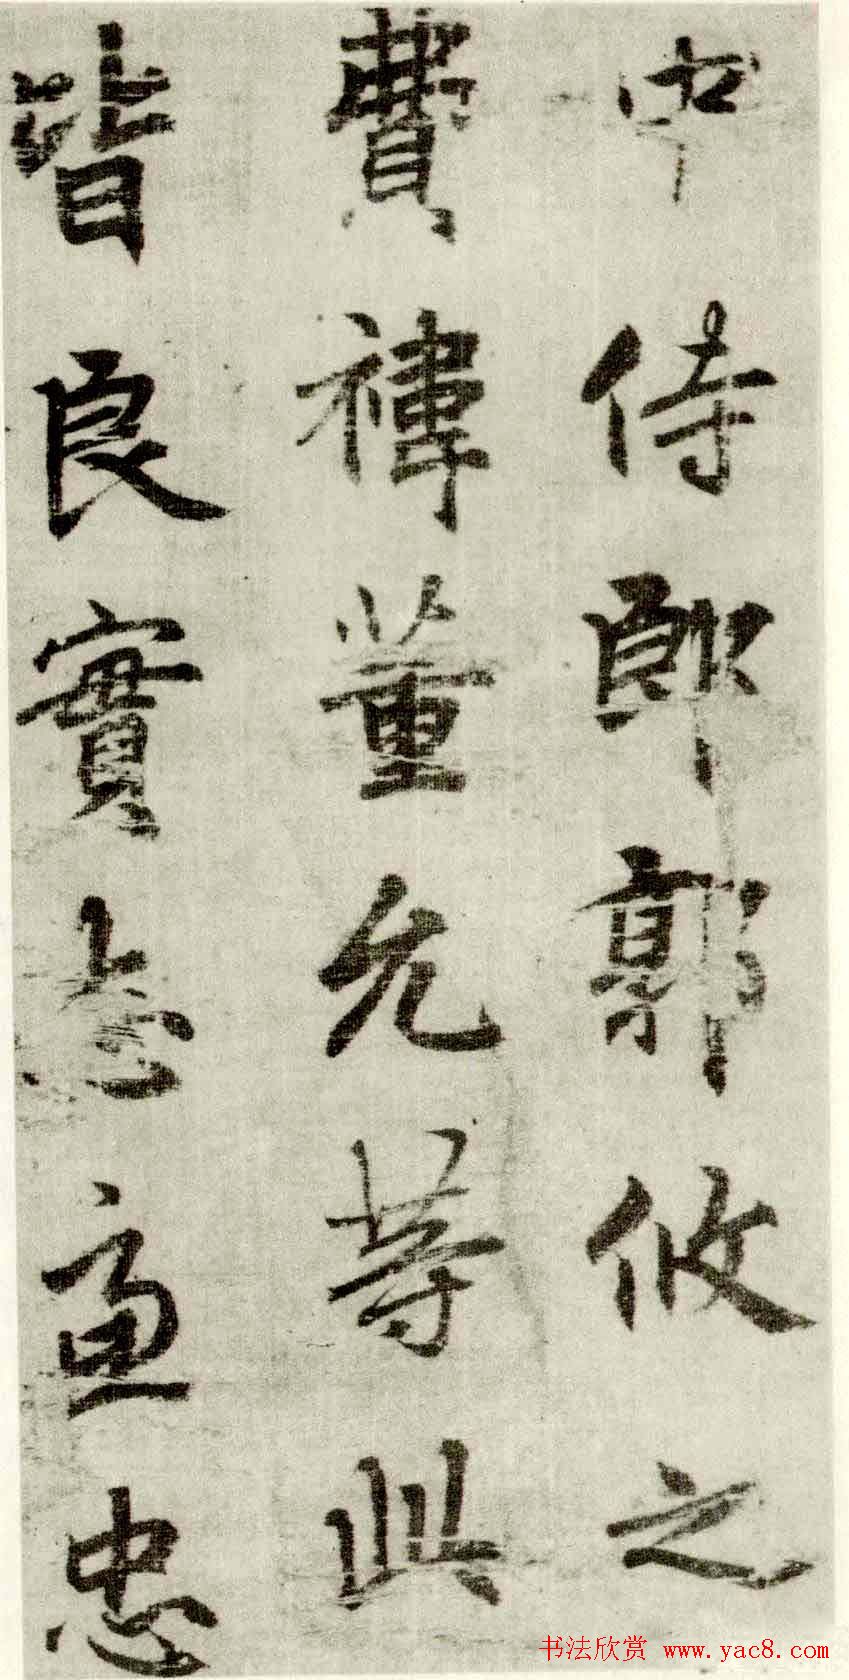 中侍郎郭攸之
費禕董允等此
皆良實志慮忠
书法欣赏 www.yac8.com